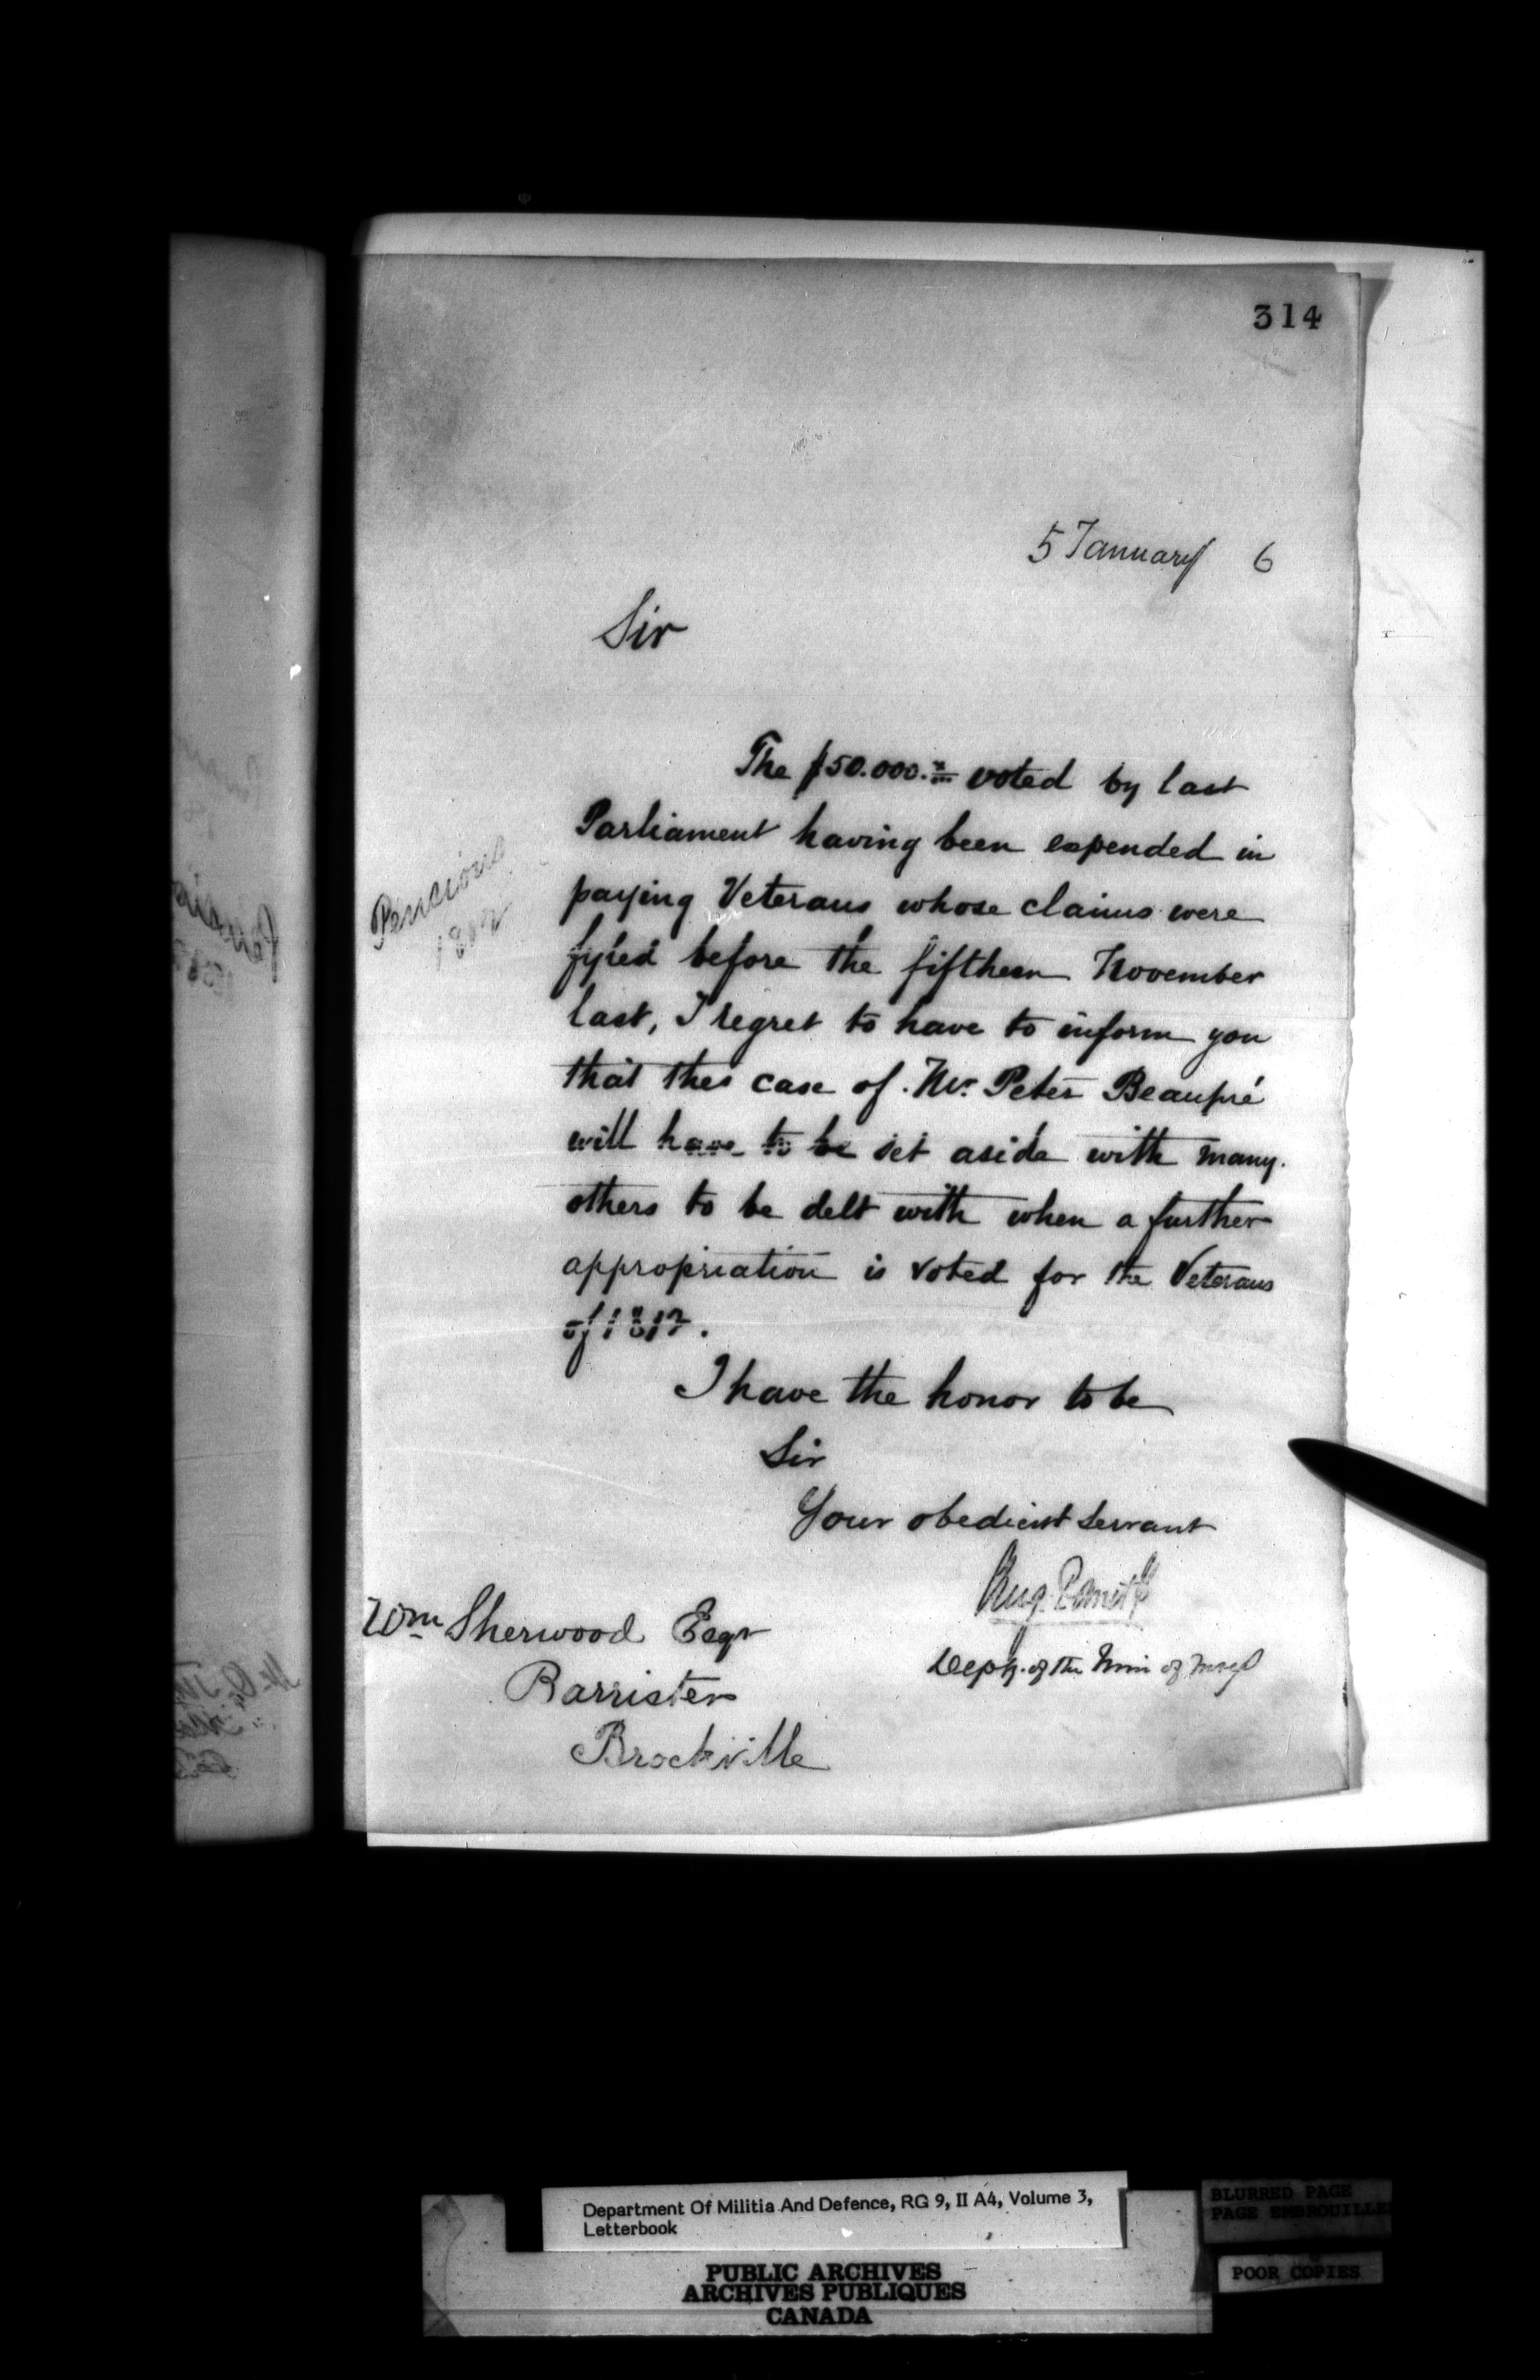 314
5 January 6
Sir
The $50.000.00 voted by last
Parliament having been expended in
paying Veterans whose claims were
fyled before the fiftheen November
last, I regret to have to inform you
that the case of Mr. Peter Beaupré
will have to be set aside with many
others to be delt with when a further
appropriation is voted for the Veterans
of 1812.
Pensions
1812
I have the honor to be
Sir
Your obedient Servant
Wm Sherwood Esqr
Barrister
Brockville
Depty. of the Min of
Department Of Militia And Defence, RG 9, II A4, Volume 3,
Letterbook
PUBLIC ARCHIVES
ARCHIVES PUBLIQUES
CANADA
BLURRED PAGE
PAGE EMBROUILLE
POOR COPIES